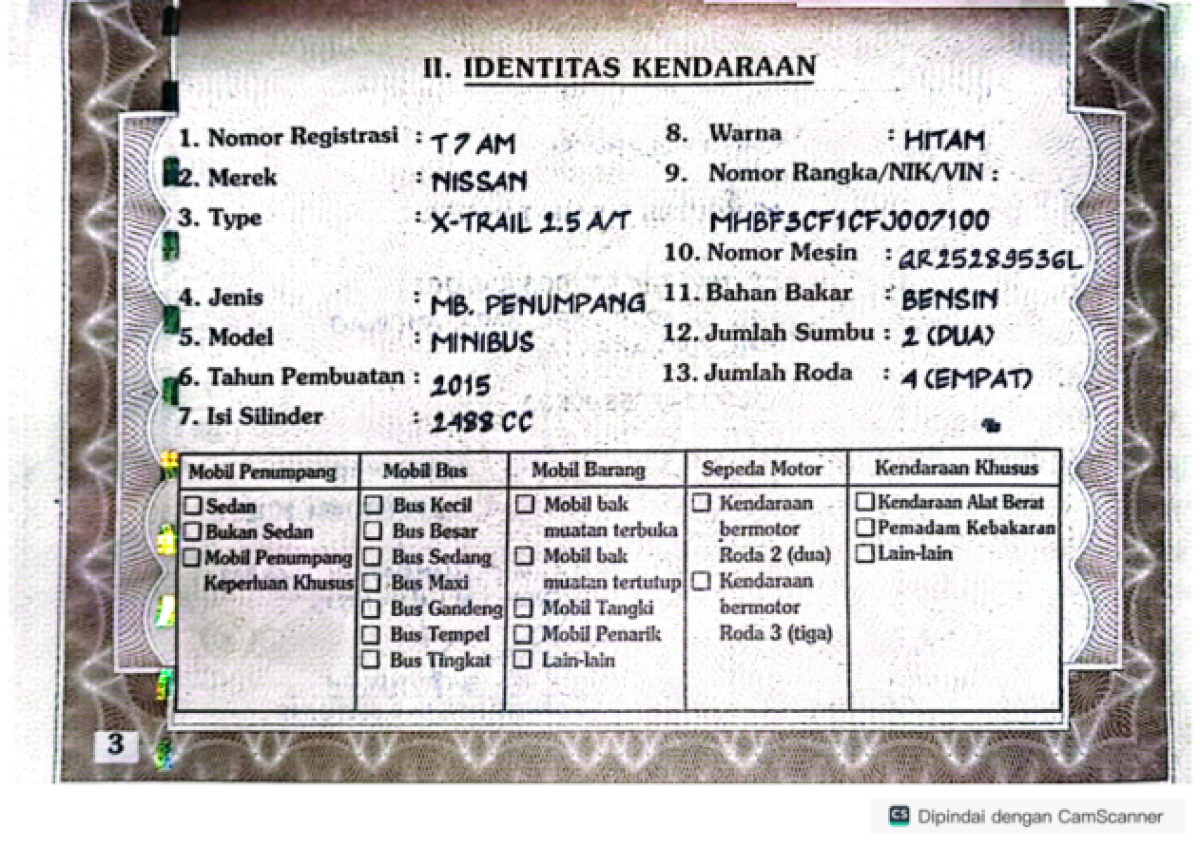 II. IDENTITAS KENDARAAN
1. Nomor Registrasi : T 7 AM
2. Merek : NISSAN
3. Type : X-TRAIL 2.5 A/T
4. Jenis : MB. PENUMPANG
5. Model : MINIBUS
6. Tahun Pembuatan : 2015
7. Isi Silinder : 2488 CC
8. Warna : HITAM
9. Nomor Rangka/NIK/VIN :
MHBF3CF1CFJ007100
10. Nomor Mesin : QR25289536L
11. Bahan Bakar : BENSIN
12. Jumlah Sumbu : 2 (DUA)
13. Jumlah Roda : 4 (EMPAT)
Mobil Penumpang
Sedan
Bukan Sedan
Mobil Penumpang
Keperluan Khusus
Mobil Bus
Bus Kecil
Bus Besar
Bus Sedang
Bus Maxi
Bus Gandeng
Bus Tempel
Bus Tingkat
Mobil Barang
Mobil bak
muatan terbuka
Mobil bak
muatan tertutup
Mobil Tangki
Mobil Penarik
Lain-lain
Sepeda Motor
Kendaraan
bermotor
Roda 2 (dua)
Kendaraan
bermotor
Roda 3 (tiga)
Kendaraan Khusus
Kendaraan Alat Berat
Pemadam Kebakaran
Lain-lain
3
CS Dipindai dengan CamScanner